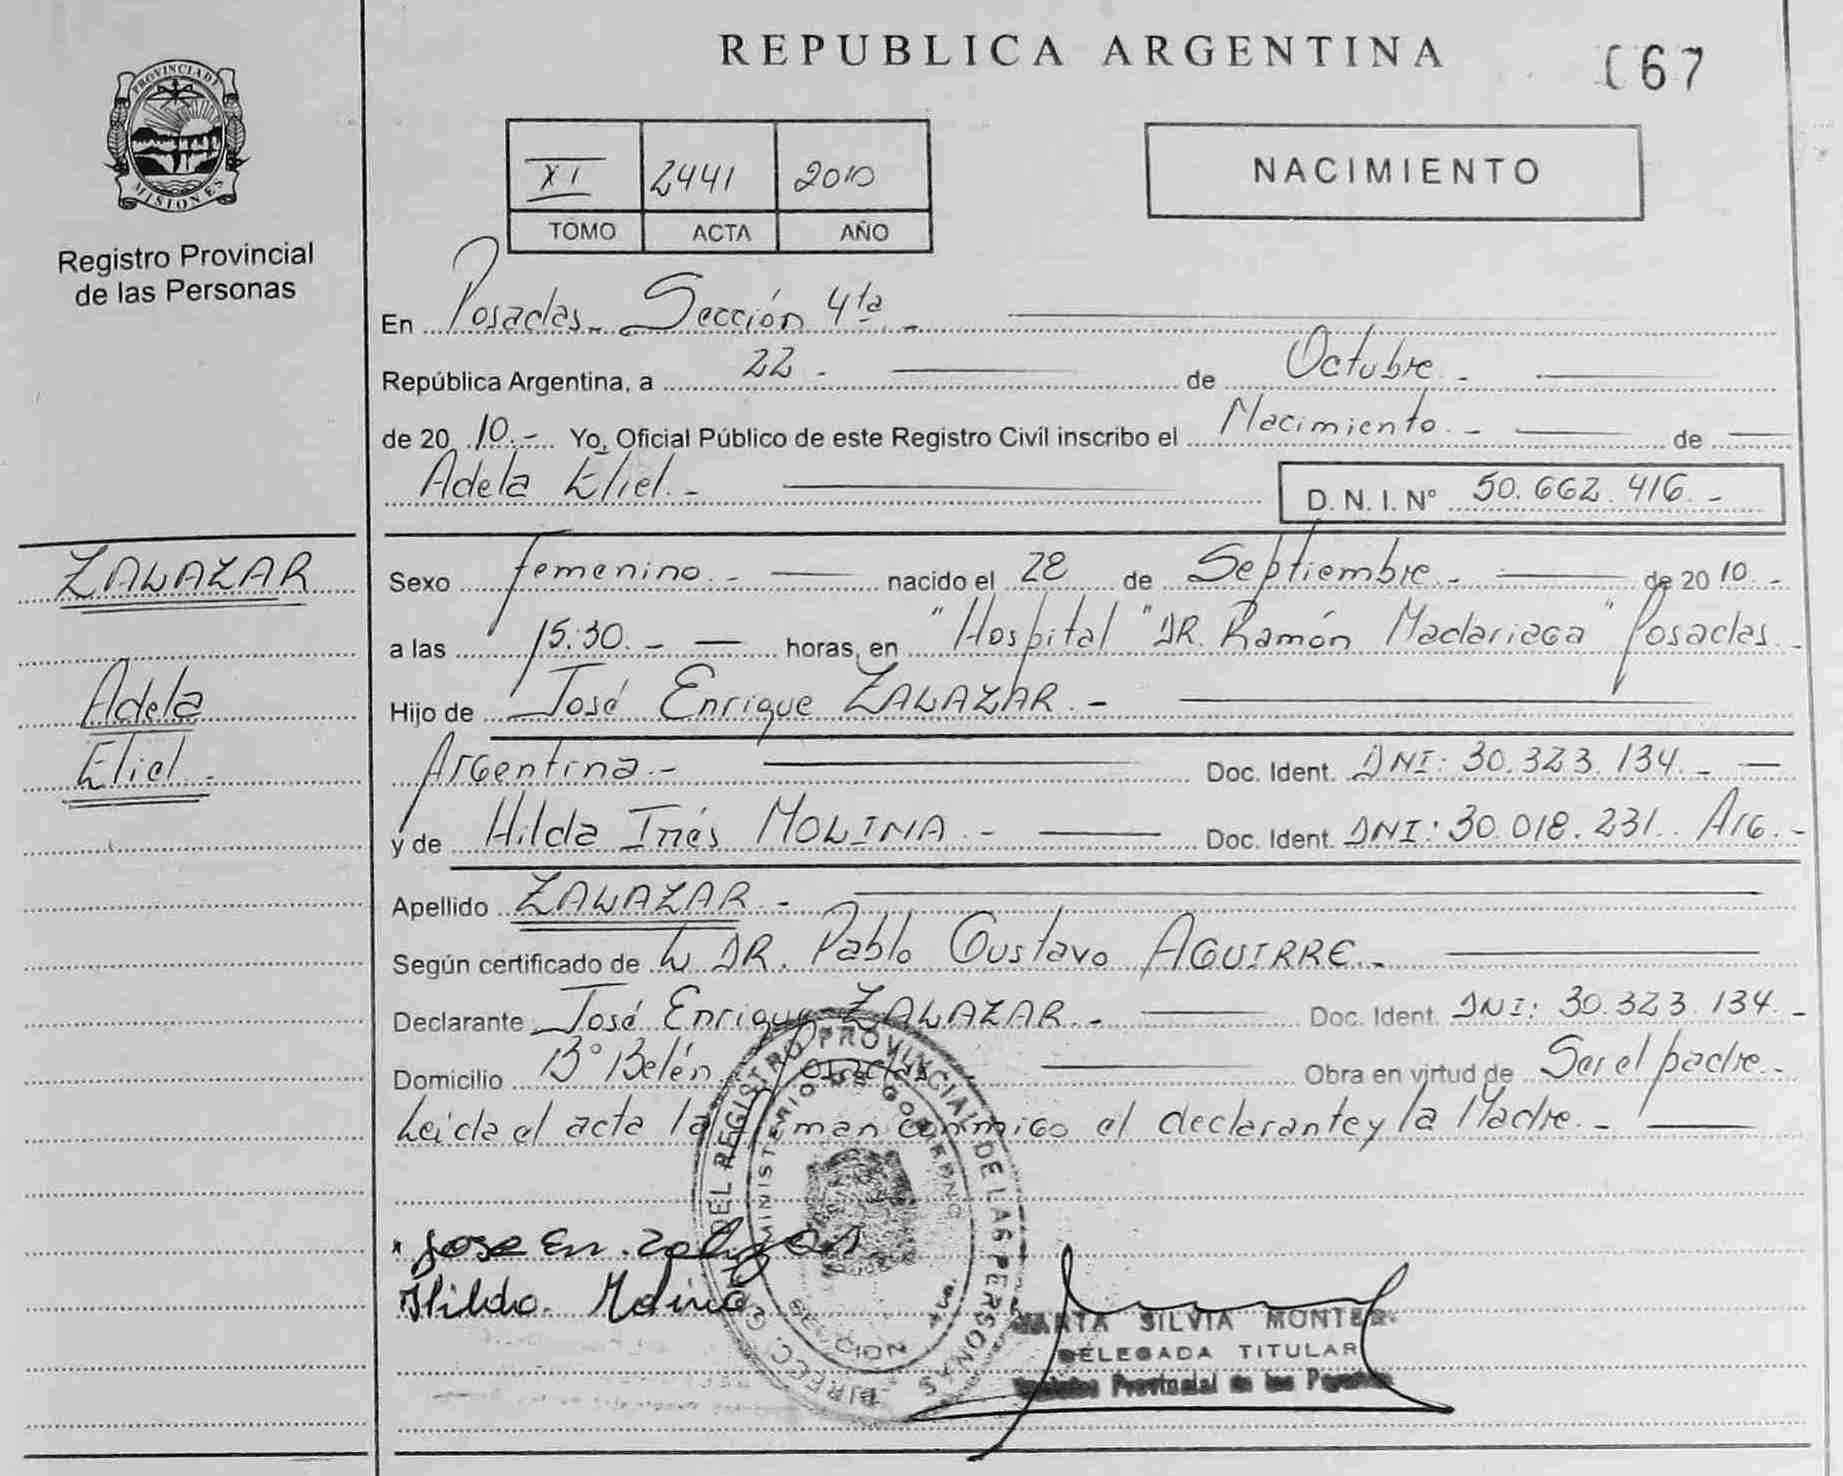 REPUBLICA ARGENTINA
67
PROVINCIA DE
MISIONES
Registro Provincial
de las Personas
NACIMIENTO
XI 2441 2010
TOMO ACTA AÑO
En Posadas.- Sección 4ta.-
República Argentina, a 22.- de Octubre.-
de 20 10.- Yo, Oficial Público de este Registro Civil inscribo el Nacimiento.- de
Adela Eliel.- D. N. I. N° 50.662.416.-
ZALAZAR
Adela
Eliel.-
Sexo femenino.- nacido el 28 de Septiembre.- de 20 10.-
a las 15:30.- horas, en "Hospital "DR. Ramón Madariaga" Posadas.-
Hijo de José Enrique ZALAZAR.-
Argentina.- Doc. Ident. DNI: 30.323.134.-
y de Hilda Inés MOLINA.- Doc. Ident. DNI: 30.018.231. Arg.-
Apellido ZALAZAR.-
Según certificado de L DR. Pablo Gustavo AGUIRRE.-
Declarante José Enrique ZALAZAR.- Doc. Ident. DNI: 30.323.134.-
Domicilio B° Belén Posadas Obra en virtud de Ser el padre.-
Leída el acta la firman conmigo el declarante y la Madre.-
Jose En. Zalazar
Hilda Molina
DIRECC. GRAL. DEL REGISTRO PROVINCIAL DE LAS PERSONAS
MINISTERIO DE GOBIERNO
MARTA SILVIA MONTER
DELEGADA TITULAR
Registro Provincial de las Personas